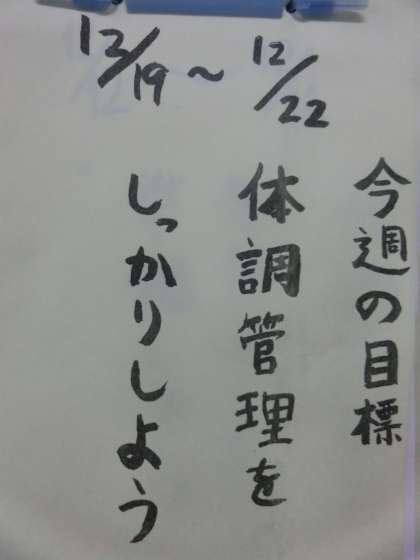 12/19～12/22
今週の目標
体調管理を
しっかりしよう